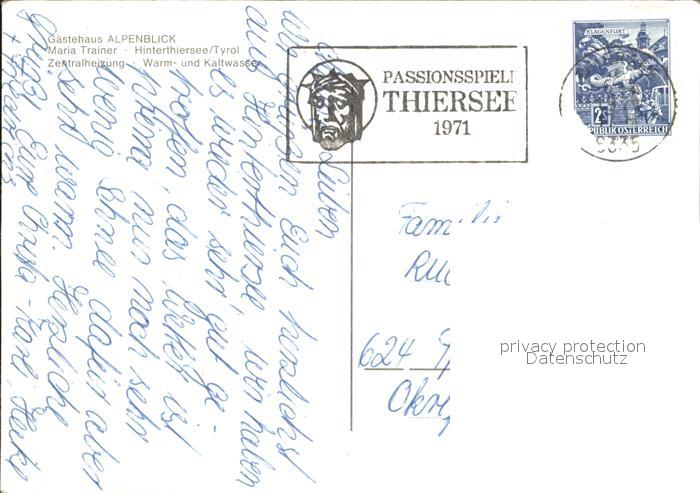 Gästehaus ALPENBLICK
Maria Trainer · Hinterthiersee/Tyrol
Zentralheizung · Warm- und Kaltwasser
PASSIONSSPIELE
THIERSEE
1971
KLAGENFURT
REPUBLIK ÖSTERREICH
Lieben
Wir grüßen Euch herzlichst
aus Hinterthiersee, wir haben
es wieder sehr gut ge-
troffen, das Wetter ist
prima, nur noch sehr
wenig Schnee dafür aber
sehr warm. Herzliche
Grüße Eure Christa - Karl, Heike
Familie
624
privacy protection
Datenschutz